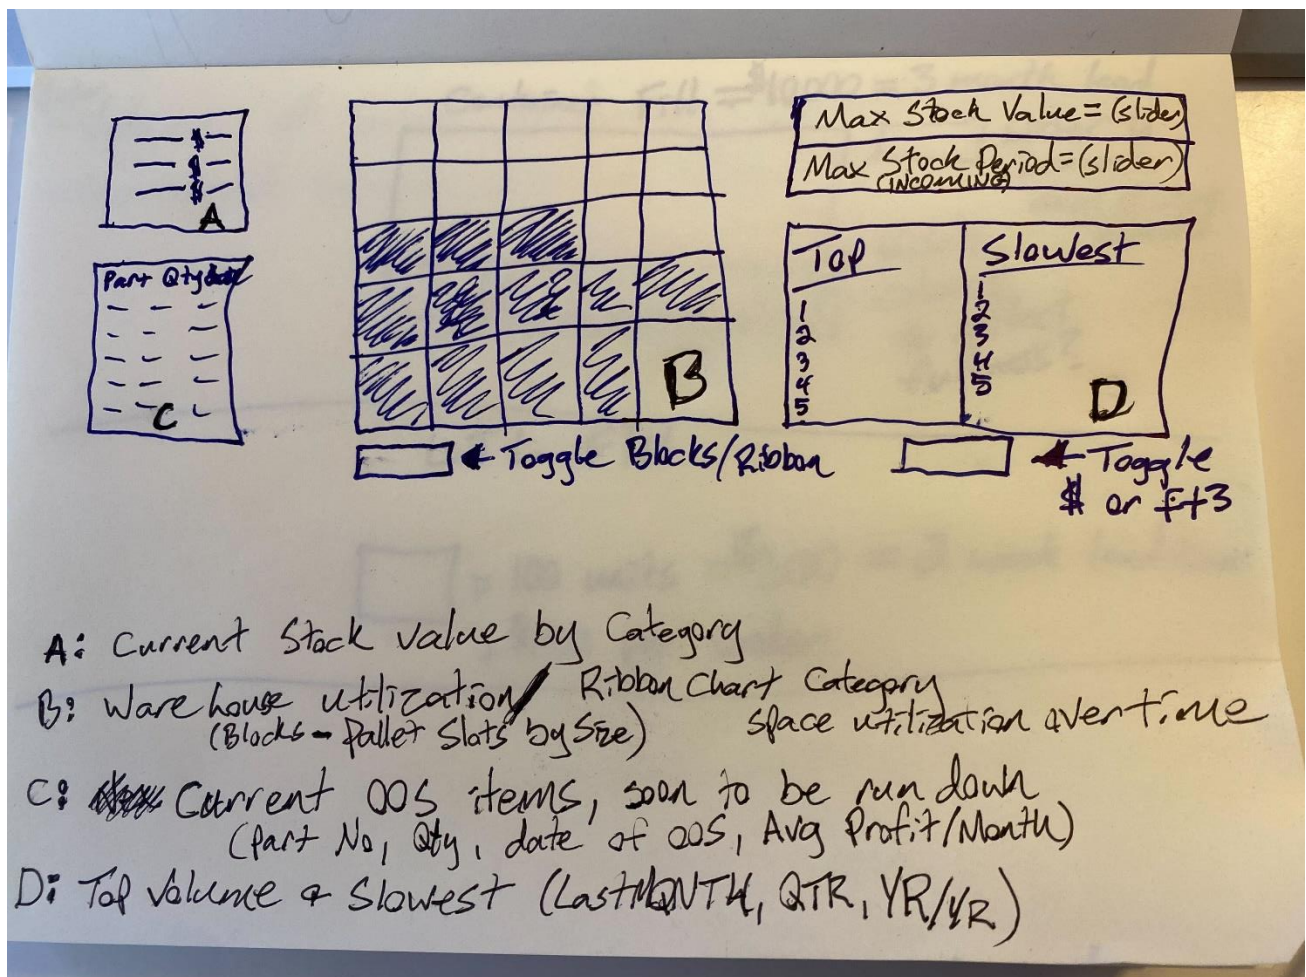 $
$
$
A
Part Qty date
C
B
Toggle Blocks/Ribbon
Max Stock Value = (slider)
Max Stock Period = (slider)
(INCOMING)
Top
1
2
3
4
5
Slowest
1
2
3
4
5
D
Toggle
$ or Ft3
A: Current Stock value by Category
B: Warehouse utilization / Ribbon Chart Category
(Blocks - Pallet Slots by Size) space utilization over time
C: Current OOS items, soon to be run down
(Part No, Qty, date of OOS, Avg Profit/Month)
D: Top Volume & Slowest (Last MONTH, QTR, YR/YR)